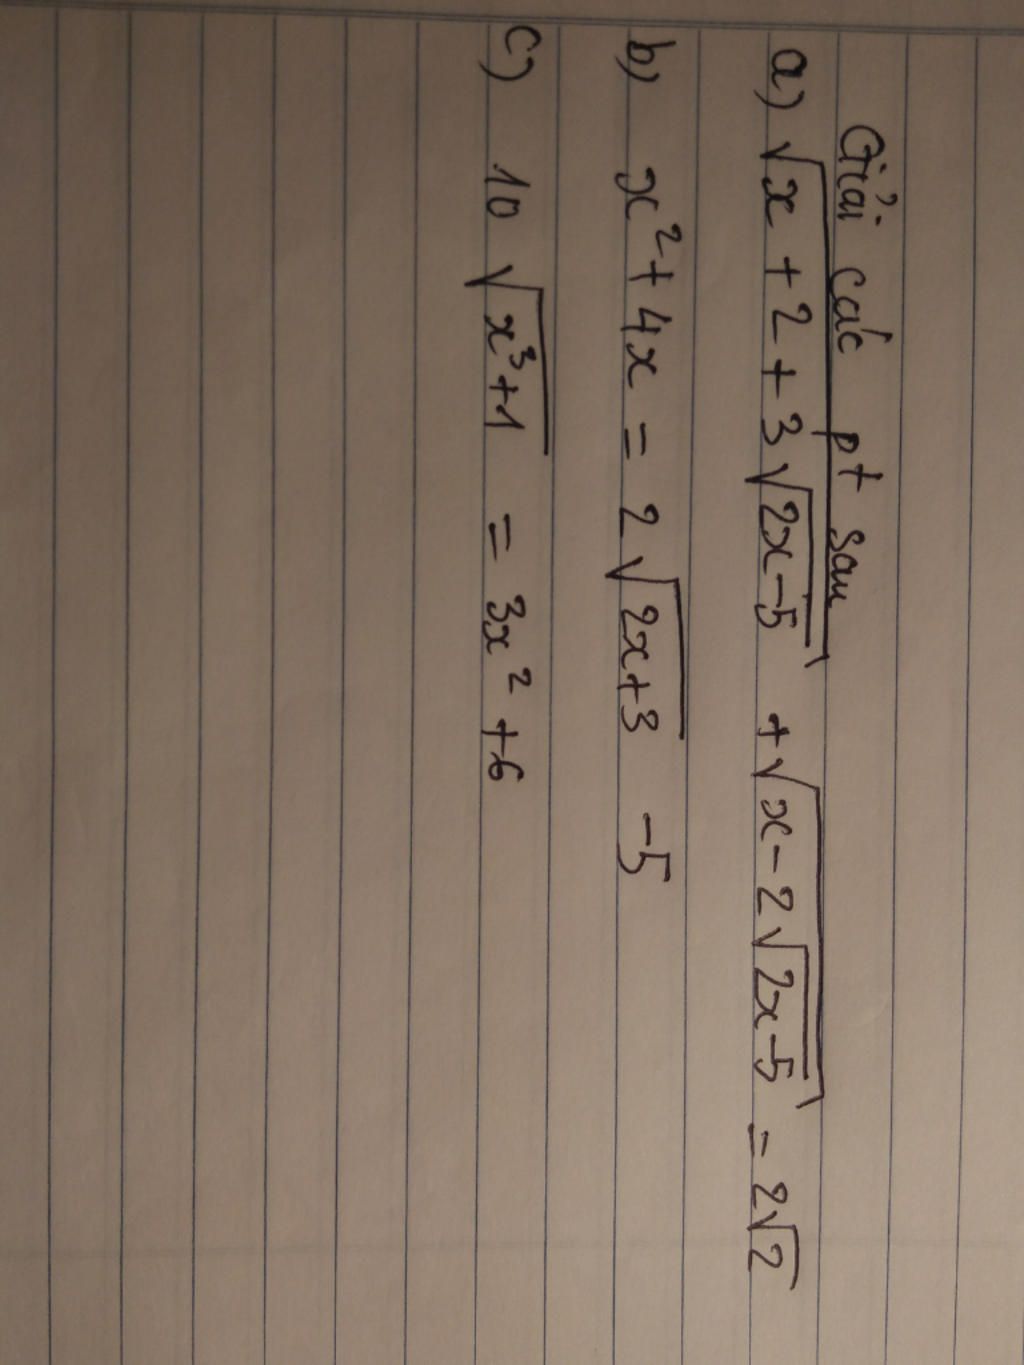 Giải các pt sau
a) √(x + 2 + 3√(2x-5)) + √(x - 2√(2x-5)) = 2√2
b) x² + 4x = 2√(2x+3) - 5
c) 10√(x³+1) = 3x² + 6